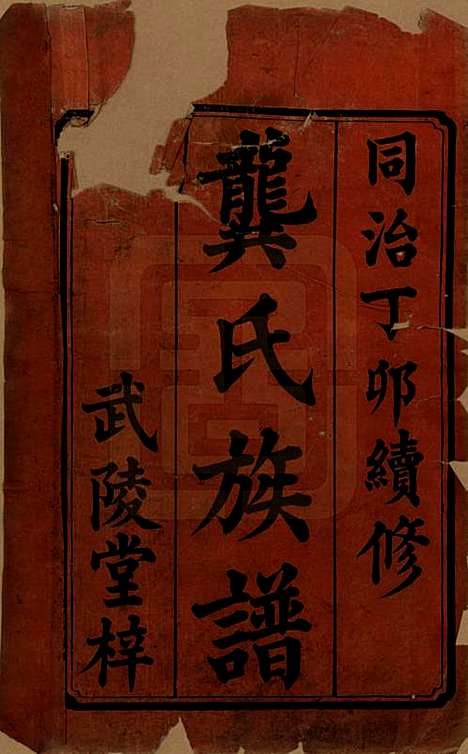 同治丁卯續修
龔氏族譜
武陵堂梓